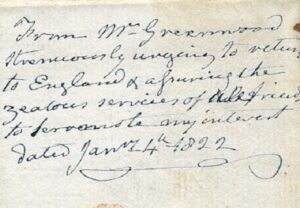 From Mr Greenwood
strenuously urging to return
to England & assuring the
zealous services of all friends
to promote my interest
dated Jany 4th 1822